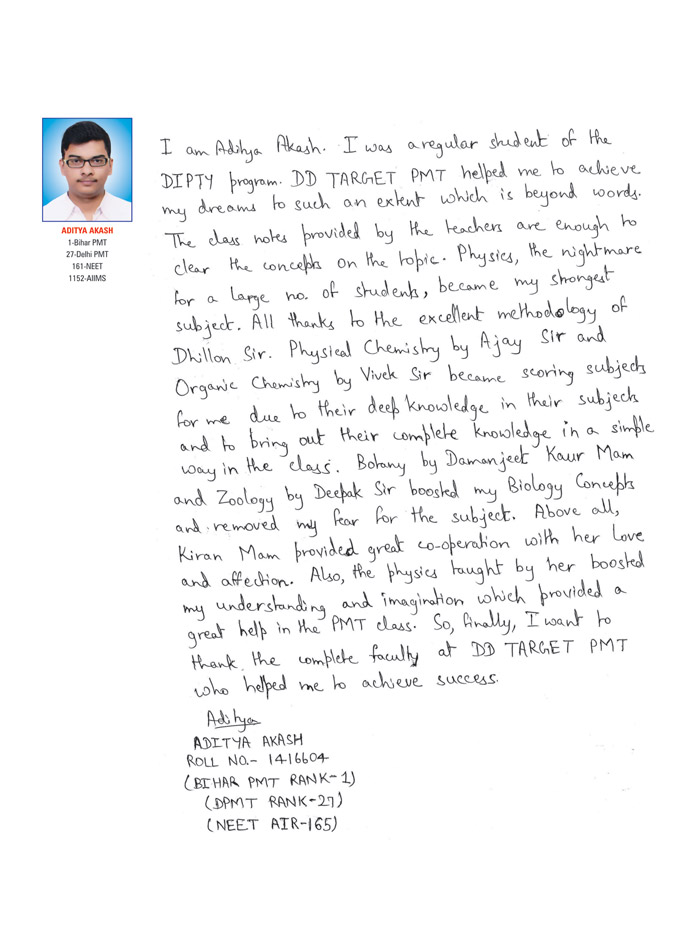 ADITYA AKASH
1-Bihar PMT
27-Delhi PMT
161-NEET
1152-AIIMS
I am Aditya Akash. I was a regular student of the
DIPTY program. DD TARGET PMT helped me to achieve
my dreams to such an extent which is beyond words.
The class notes provided by the teachers are enough to
clear the concepts on the topic. Physics, the nightmare
for a large no. of students, became my strongest
subject. All thanks to the excellent methodology of
Dhillon Sir. Physical Chemistry by Ajay Sir and
Organic Chemistry by Vivek Sir became scoring subjects
for me due to their deep knowledge in their subjects
and to bring out their complete knowledge in a simple
way in the class. Botany by Damanjeet Kaur Mam
and Zoology by Deepak Sir boosted my Biology Concepts
and removed my fear for the subject. Above all,
Kiran Mam provided great co-operation with her love
and affection. Also, the physics taught by her boosted
my understanding and imagination which provided a
great help in the PMT class. So, finally, I want to
thank the complete faculty at DD TARGET PMT
who helped me to achieve success.
Aditya
ADITYA AKASH
ROLL NO.- 1416604
(BIHAR PMT RANK-1)
(DPMT RANK-27)
(NEET AIR-165)